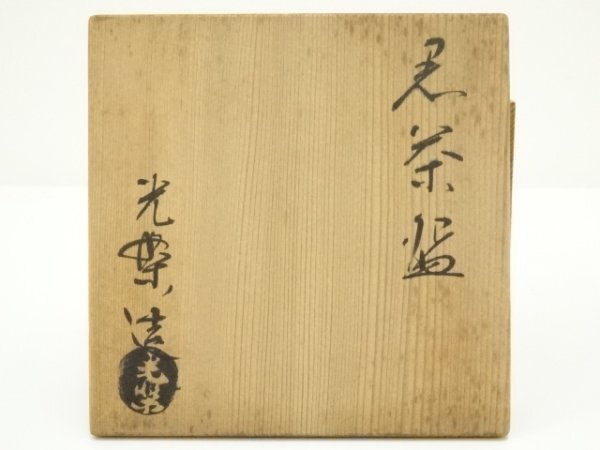 黒茶碗
光楽造
光楽